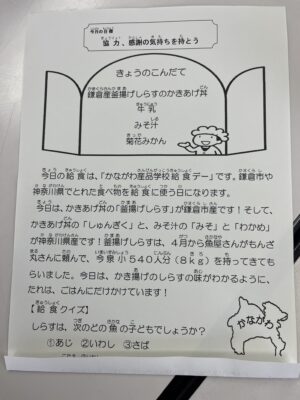 今月の目標
協力、感謝の気持ちを持とう
きょうのこんだて
鎌倉産釜揚げしらすのかきあげ丼
牛乳
みそ汁
菊花みかん
今日の給食は、「かながわ産品学校給食デー」です。鎌倉市や
神奈川県でとれた食べ物を給食に使う日になります。
今日は、かきあげ丼の「釜揚げしらす」が鎌倉市産です！そして、
かきあげ丼の「しゅんぎく」と、みそ汁の「みそ」と「わかめ」
が神奈川県産です！釜揚げしらすは、4月から魚屋さんがもんざ
丸さんに頼んで、今泉小540人分（8kg）を持ってきても
らいました。今日は、かき揚げのしらすの味がわかるように、
たれは、ごはんにだけかけています！
【給食クイズ】
しらすは、次のどの魚の子どもでしょうか？
①あじ　②いわし　③さば
かながわ